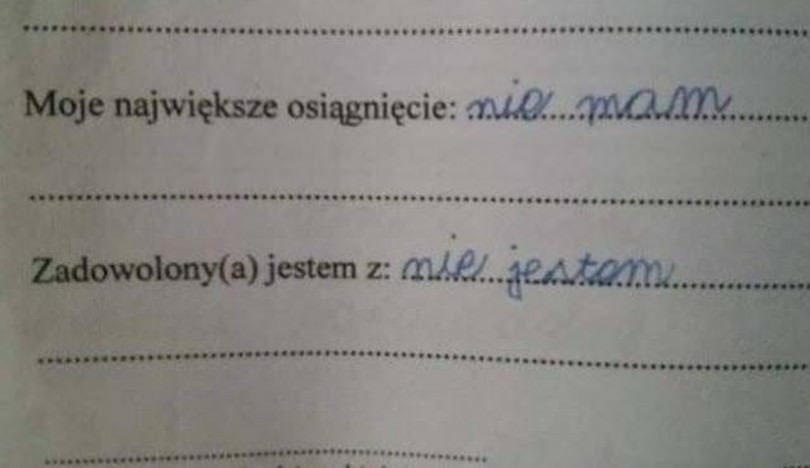 Moje największe osiągnięcie: nie mam
Zadowolony(a) jestem z: nie jestem